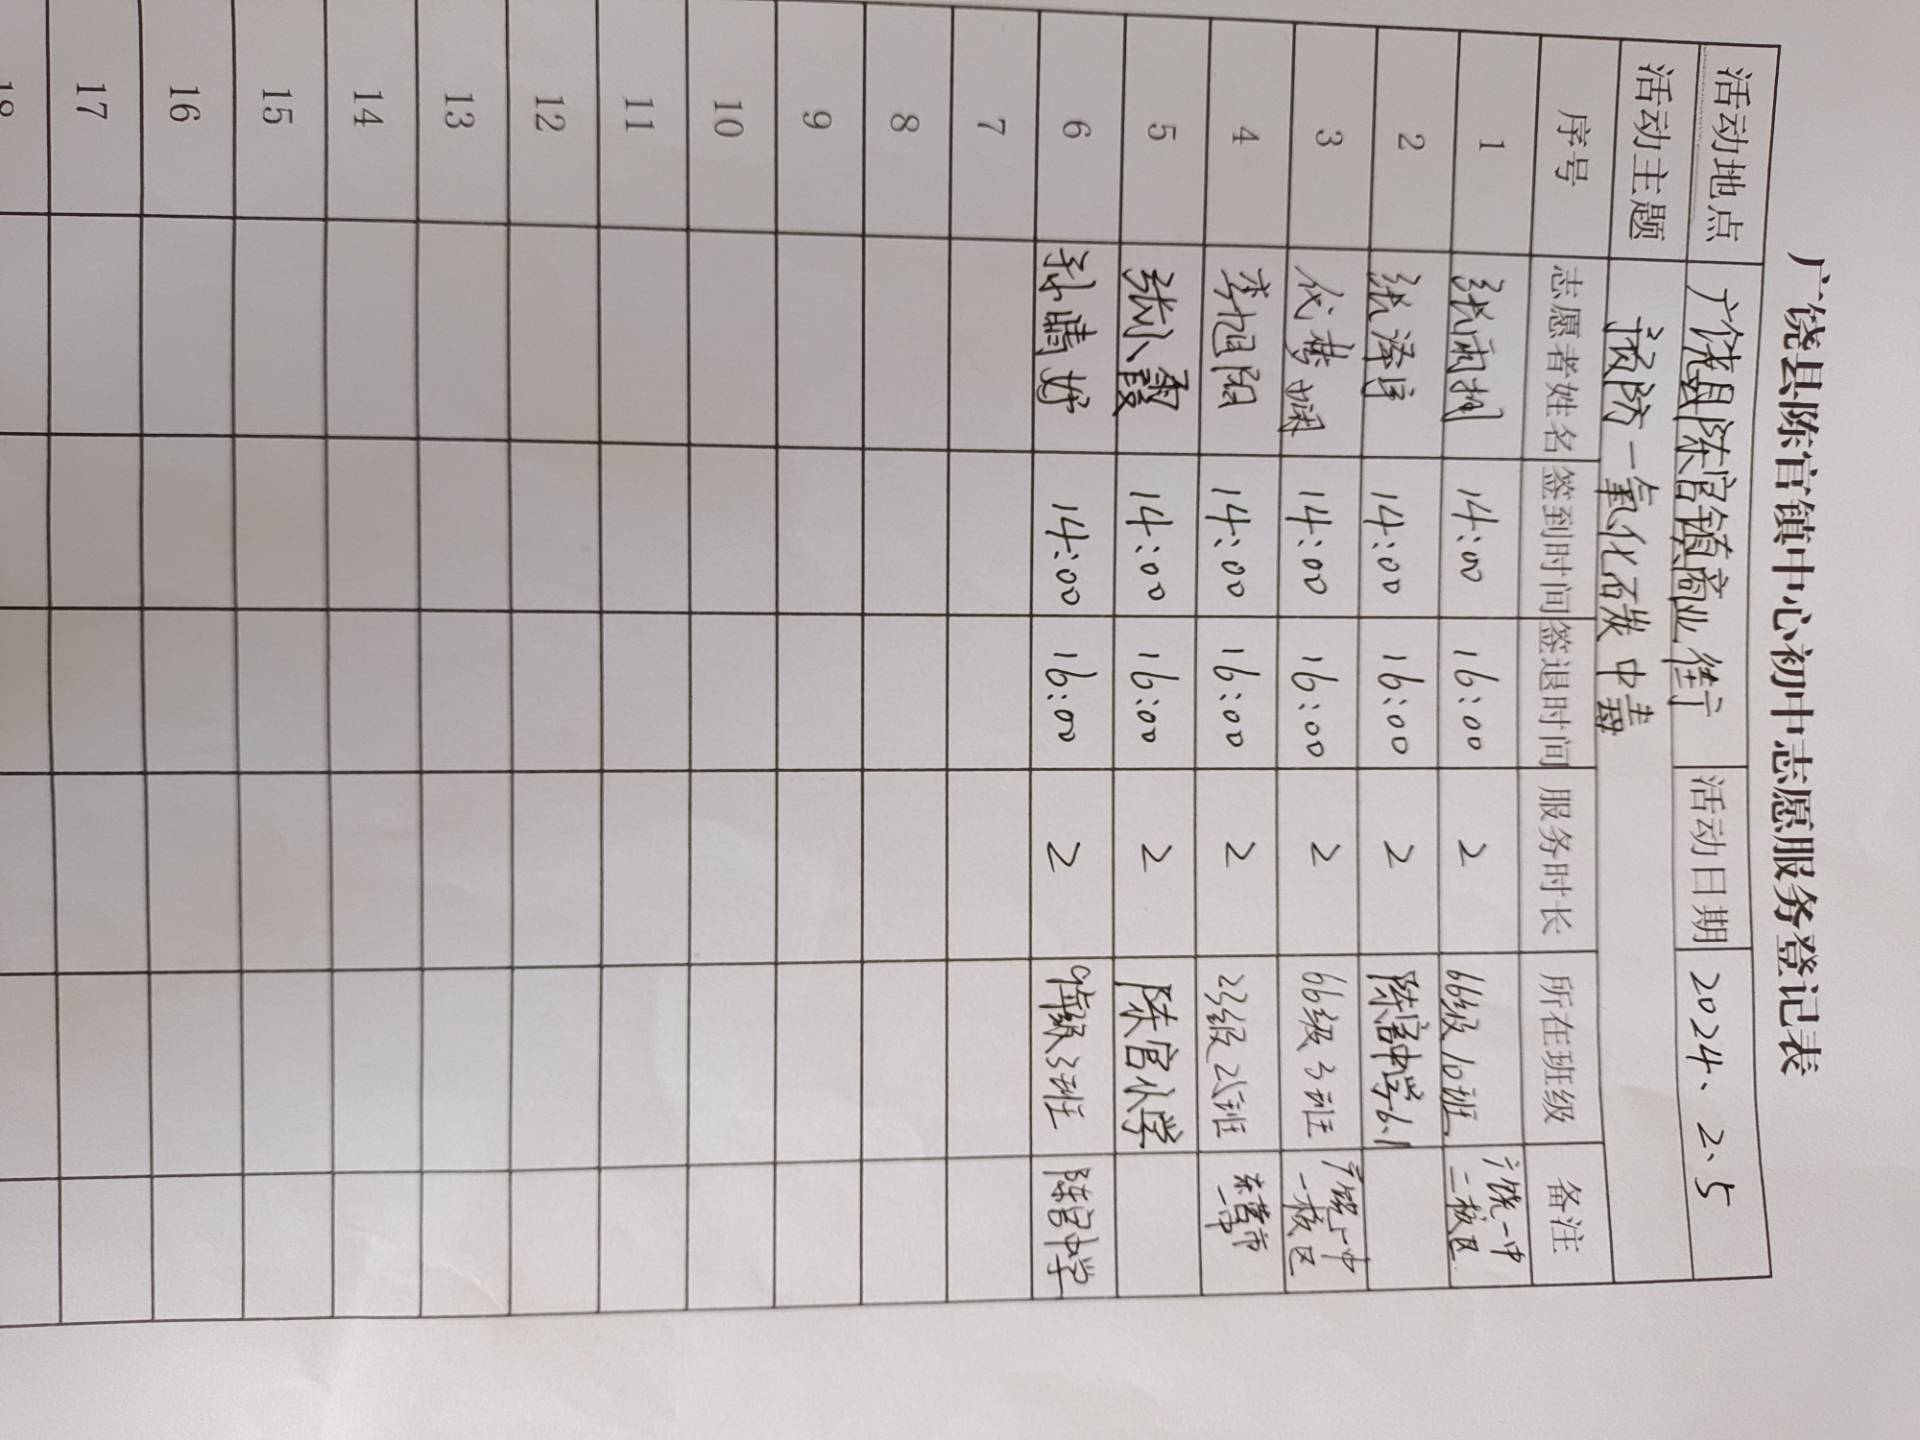 广饶县陈官镇中心初中志愿服务登记表
活动地点 广饶县陈官镇商业街 活动日期 2024、2、5
活动主题 预防一氧化碳中毒
序号 志愿者姓名 签到时间 签退时间 服务时长 所在班级 备注
1 张雨桐 14:00 16:00 2 66级10班 广饶一中二校区
2 张泽宇 14:00 16:00 2 陈官中学6.1
3 代梦娴 14:00 16:00 2 66级3班 广饶一中一校区
4 李旭阳 14:00 16:00 2 23级25班 东营市一中
5 张小霞 14:00 16:00 2 陈官小学
6 孙晴好 14:00 16:00 2 9年级3班 陈官中学
7
8
9
10
11
12
13
14
15
16
17
18